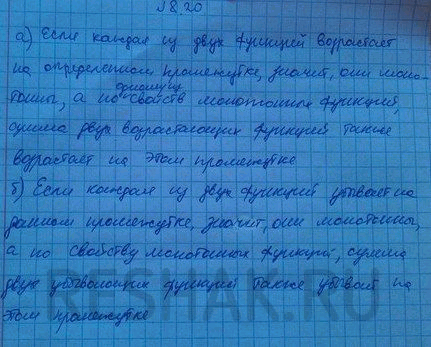 №8.20
а) Если каждая из двух функций возрастает
на определенном промежутке, значит, они моно-
одному из
тонны, а по свойств монотонных функций,
сумма двух возрастающих функций также
возрастает на этом промежутке
б) Если каждая из двух функций убывает на
данном промежутке, значит, они монотонны,
а по свойству монотонных функций, сумма
двух убывающих функций также убывает на
этом промежутке
RESHAK.RU